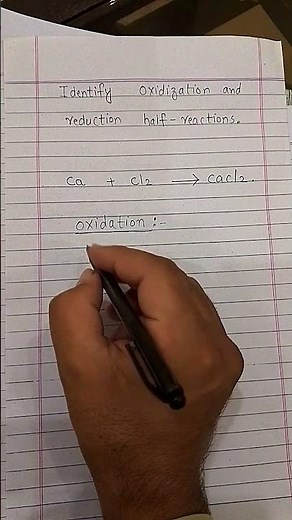 Identify Oxidization and
reduction half-reactions.
Ca + Cl2 → CaCl2.
Oxidation :-